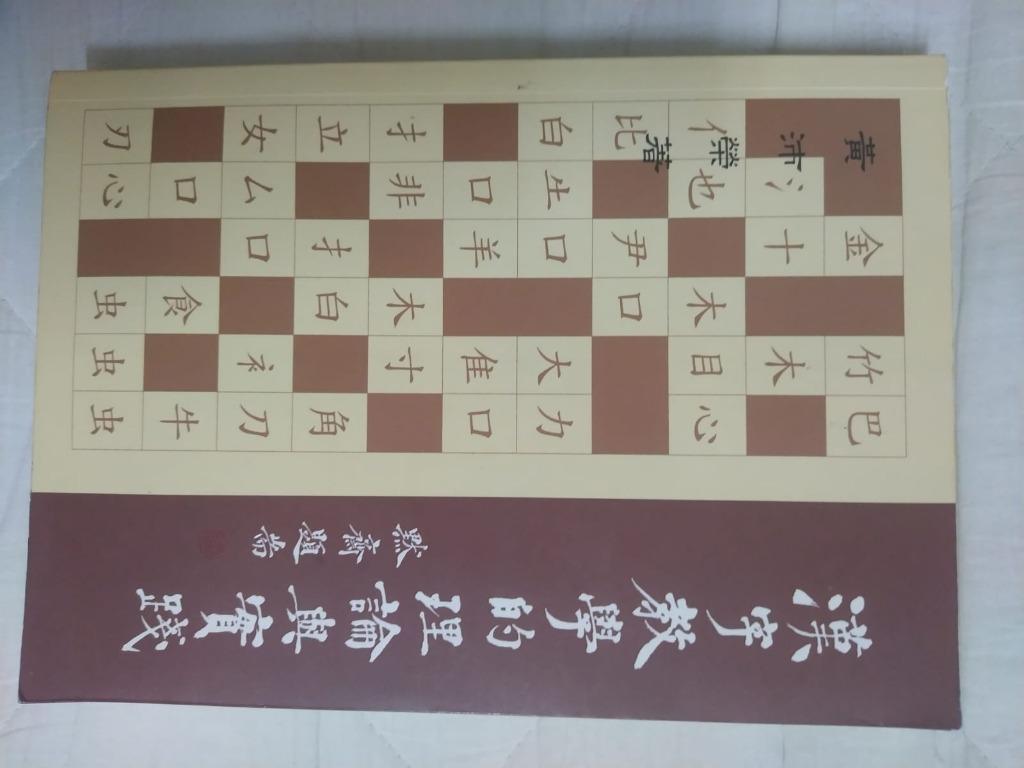 漢字教學的理論與實踐
默齋題耑
黃沛榮 著
金 竹 巴
氵 十 木
亻 也 木 目 心
比 尹 口
白 生 口 大 力
口 羊 隹 口
扌 非 木 寸
立 扌 白 角
女 厶 口 礻 刀
口 食 牛
刃 心 虫 虫 虫